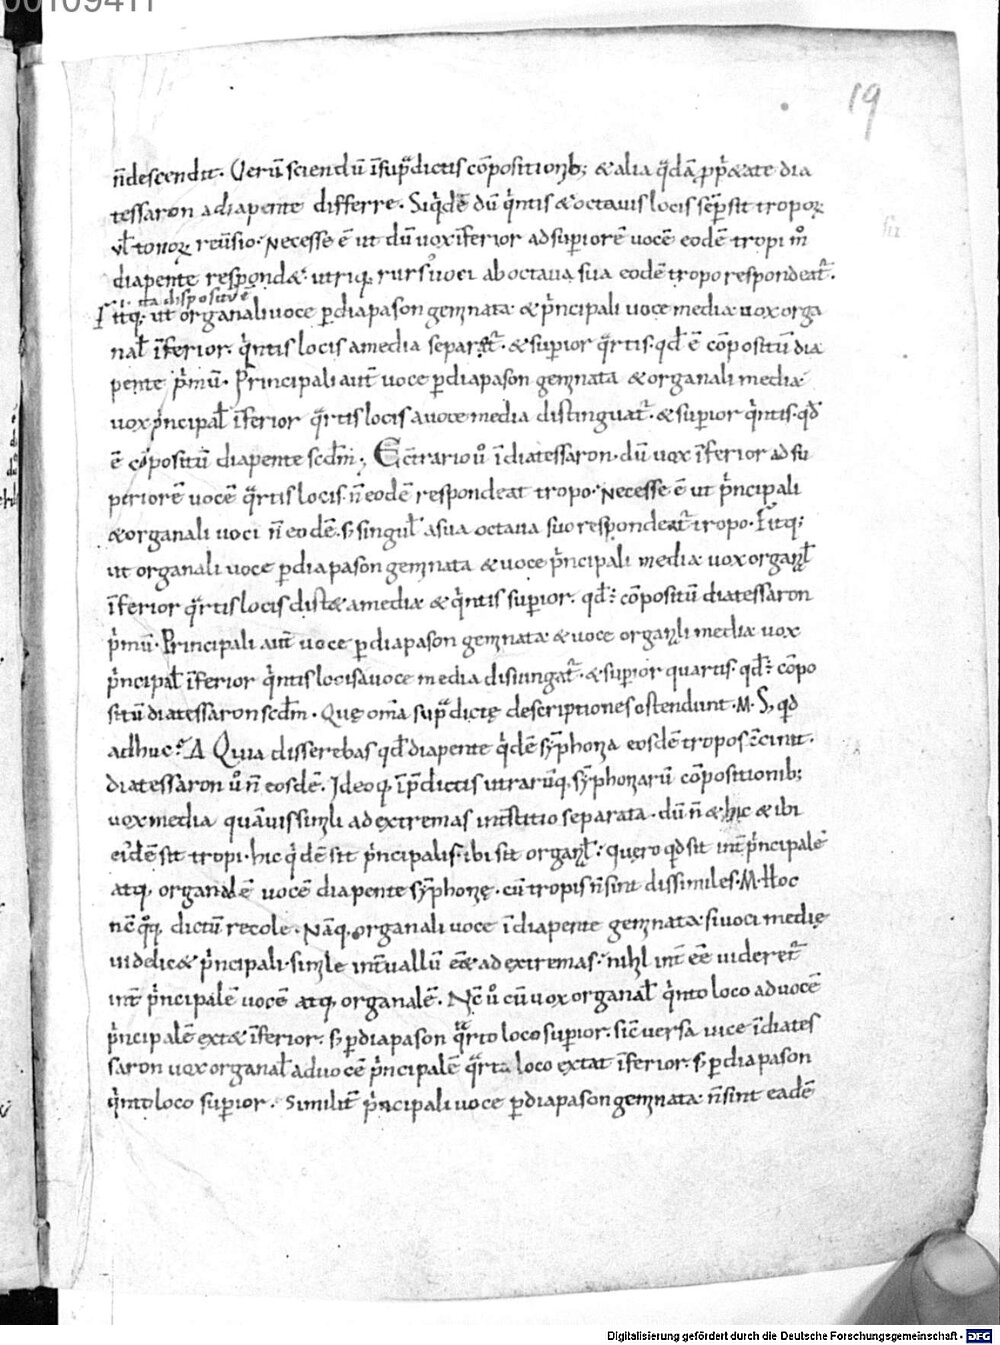 00109411
19
n̄descendit. Verū sciendū īsup̄dictis cōpositionib; & alia q̄dā p̱p̄&ate dia
tessaron adiapente differre. Siq̄dē dū q̄ntis & octauis locis sēp sit troporꝝ
vl̄ tonorꝝ reūsio. Necesse ē ut dū uox īferior adsup̱iorē uocē eodē tropi m̊
diapente respond&. utriq; rursū uoci aboctaua sua eodē tropo respondeat̄.
i. ita dispositiuē
Fitq; ut organali uoce p̱diapason gemnata & p̄ncipali uoce media uox orga
nal̄ īferior. q̄ntis locis amedia separet̄. & sup̱ior q̄rtis. qd̄ ē cōpositū dia
pente p̄mū. Principali aut̄ uoce p̱diapason gemnata & organali media
uox p̄ncipal̄ īferior q̄rtis locis auoce media distinguat̄. & sup̱ior q̄ntis. qd̄
ē cōpositū diapente scdm̄. Ec̄trario ů īdiatessaron. dū uox īferior ad su
periorē uocē q̄rtis locis. n̄ eodē respondeat tropo. Necesse ē ut p̄ncipali
& organali uoci n̄ eodē. s; singul̄ asua octaua suo respondeat̄ tropo. Fitq;
ut organali uoce p̱diapason gemnata & uoce p̄ncipali media uox organl̄
īferior q̄rtis locis dist& amedia & q̄ntis sup̱ior. qd̄ ē cōpositū diatessaron
p̄mū. Principali aut̄ uoce p̱diapason gemnata & uoce organli media uox
p̄ncipal̄ īferior q̄ntis locis auoce media disiungat̄. & sup̱ior quartis. qd̄ ē cōpo
sitū diatessaron scdm̄. Quę om̄a sup̄dictę descriptiones ostendunt. M. S; qd
adhuc? Δ Quia disserebas qd̄ diapente q̄dē sȳphona eosdē tropos c̄cinit.
diatessaron ů n̄ eosdē. Ideoq; īp̄dictis utrarūq; sȳphonarū cōpositionib;
uox media quāuis simli adextremas int̄stitio separata. dū n̄ & hic & ibi
eidē sit tropi. hic q̄dē sit p̄ncipalis. ibi sit organl̄. quero qd sit int̄ p̄ncipalē
atq; organalē uocē diapente sȳphonę. cū tropis n̄ sint dissimiles. M. Hoc
nc̄ q̊q; dictū recole. Nāq; organali uoce īdiapente gemnata si uoci medię
uidelic& p̄ncipali. simle int̄uallū eēt adextremas. nihl int̄ eē uideret̄
int̄ p̄ncipalē uocē atq; organalē. Nc̄ ů cū uox organal̄ q̄nto loco aduocē
p̄ncipalē ext& īferior. s; p̱diapason q̄rto loco sup̱ior. sic uersa uice īdiates
saron uox organal̄ aduocē p̄ncipalē q̄rto loco extat īferior. s; p̱diapason
q̄nto loco sup̱ior. Similit̄ p̄ncipali uoce p̱diapason gemnata n̄ sint eadē
Digitalisierung gefördert durch die Deutsche Forschungsgemeinschaft - DFG